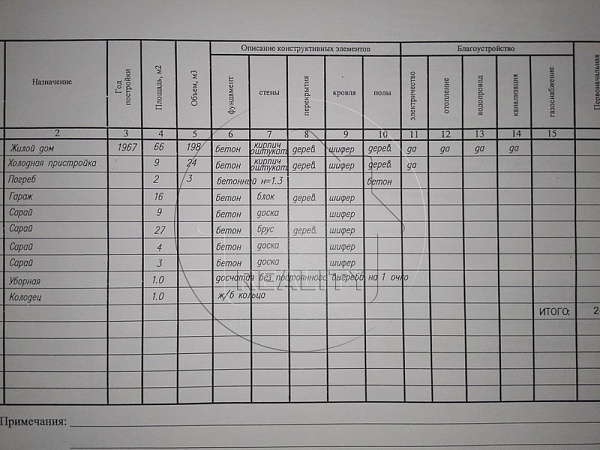 Описание конструктивных элементов Благоустройство
Назначение Год постройки Площадь, м2 Объем, м3 фундамент стены перекрытия кровля полы электричество отопление водопровод канализация газоснабжение Первоначальная
2 3 4 5 6 7 8 9 10 11 12 13 14 15
Жилой дом 1967 66 198 бетон кирпич оштукат. дерев. шифер дерев. да да да да
Холодная пристройка 9 24 бетон кирпич оштукат. дерев. шифер дерев. да
Погреб 2 3 бетонней н=1.3 бетон
Гараж 16 бетон блок дерев. шифер
Сарай 9 бетон доска шифер
Сарай 27 бетон брус дерев. шифер
Сарай 4 бетон доска шифер
Сарай 3 бетон доска шифер
Уборная 1.0 досчатая без постоянного выгреба на 1 очко
Колодец 1.0 ж/б кольца
ИТОГО: 2
Примечания: